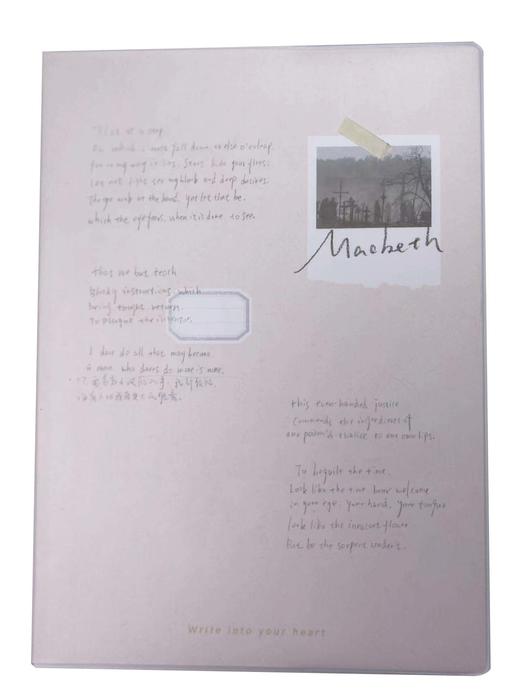 On which i must fall down or else o'erleap.
For in my way it lies. Stars hide your fires;
Let not light see my black and deep desires.
The eye wink at the hand, yet let that be.
which the eye fears, when it is done to see.
that we but teach
Bloody instructions, which
being taught return
To plague the
I dare do all that may become
a man. who dares do more is none.
Macbeth
this even-handed justice
Commends the ingredients of
our poison'd chalice to our own lips.
To beguile the time.
Look like the time bear welcome
in your eye, your hand, your tongue
look like the innocent flower
But be the serpent under't.
Write into your heart